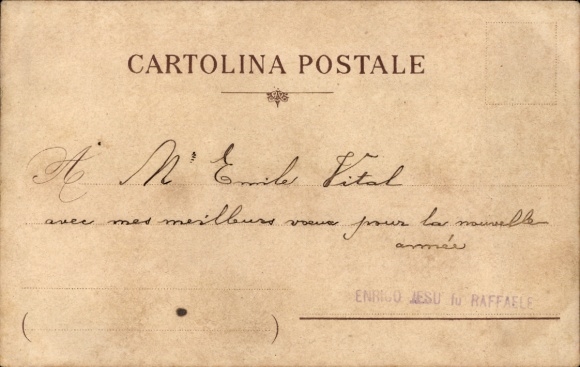 CARTOLINA POSTALE
A Mr Emile Vital
avec mes meilleurs vœux pour la nouvelle
année
ENRICO JESU fu RAFFAELE
( )